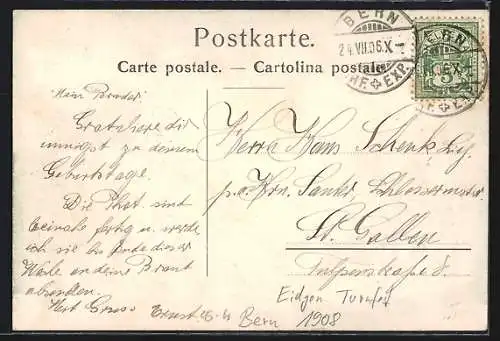 Postkarte.
Carte postale. — Cartolina postale.
BERN
24.VII.06.X
BRF. EXP.
5
Mein Bruder!
Gratuliere dir
innigst zu deinem
Geburtstage.
Die Phot. sind
beinahe fertig u. werde
ich sie bis Ende dieser
Woche an deine Braut
absenden.
Herzl. Gruss Ernst
Herrn Hans Schenk,
p. a. Hrn. Sauter Schlossermstr.
St. Gallen
Eidgen Turnfest
Bern 1908